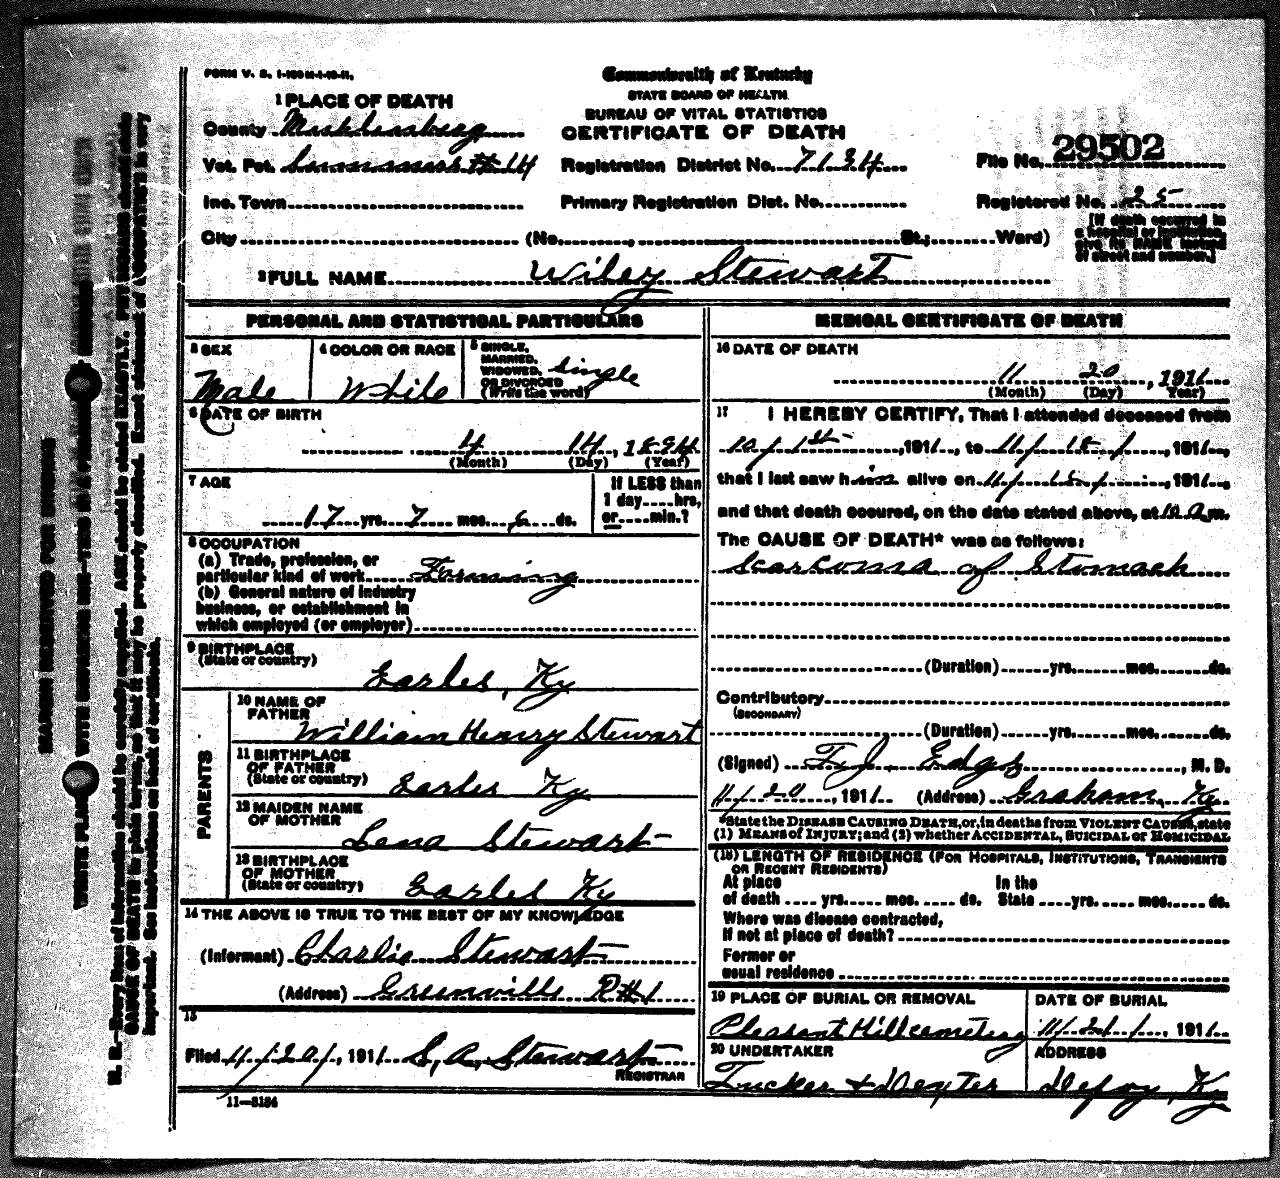 FORM V. S. 1-100M-1-10-11.
Commonwealth of Kentucky
STATE BOARD OF HEALTH
BUREAU OF VITAL STATISTICS
CERTIFICATE OF DEATH
1 PLACE OF DEATH
County Muhlenberg
Vot. Pct. Summers #14
Registration District No. 7134
File No. 29502
Inc. Town
Primary Registration Dist. No.
Registered No. 25
City (No. , St.; Ward)
[If death occurred in a hospital or institution, give its NAME instead of street and number.]
2 FULL NAME Wiley Stewart
PERSONAL AND STATISTICAL PARTICULARS
3 SEX
Male
4 COLOR OR RACE
White
5 SINGLE, MARRIED, WIDOWED, OR DIVORCED (Write the word)
Single
6 DATE OF BIRTH
4 14, 1894
(Month) (Day) (Year)
7 AGE
17 yrs. 7 mos. 6 ds.
If LESS than 1 day hrs. or min.?
8 OCCUPATION
(a) Trade, profession, or particular kind of work Farming
(b) General nature of industry business, or establishment in which employed (or employer)
9 BIRTHPLACE
(State or country)
Earles, Ky
PARENTS
10 NAME OF FATHER
William Henry Stewart
11 BIRTHPLACE OF FATHER (State or country)
Earles Ky
12 MAIDEN NAME OF MOTHER
Lena Stewart
13 BIRTHPLACE OF MOTHER (State or country)
Earles Ky
14 THE ABOVE IS TRUE TO THE BEST OF MY KNOWLEDGE
(Informant) Charlie Stewart
(Address) Greenville R#1
15
Filed 11/20/, 1911 S. A. Stewart
REGISTRAR
11—3184
MEDICAL CERTIFICATE OF DEATH
16 DATE OF DEATH
11 20, 1911
(Month) (Day) (Year)
17 I HEREBY CERTIFY, That I attended deceased from
10/1st, 1911, to 11/18/, 1911,
that I last saw him alive on 11/18/, 1911,
and that death occured, on the date stated above, at 10 a m.
The CAUSE OF DEATH* was as follows:
Scarcoma of Stomach
(Duration) yrs. mos. ds.
Contributory
(SECONDARY)
(Duration) yrs. mos. ds.
(Signed) T. J. , M. D.
11/20, 1911 (Address) Graham, Ky
State the DISEASE CAUSING DEATH, or, in deaths from VIOLENT CAUSES, state
(1) MEANS of INJURY; and (2) whether ACCIDENTAL, SUICIDAL or HOMICIDAL
(18) LENGTH OF RESIDENCE (FOR HOSPITALS, INSTITUTIONS, TRANSIENTS OR RECENT RESIDENTS)
At place of death yrs. mos. ds. In the State yrs. mos. ds.
Where was disease contracted,
If not at place of death?
Former or
usual residence
19 PLACE OF BURIAL OR REMOVAL
Pleasant Hill cemetery
DATE OF BURIAL
11/21/, 1911
20 UNDERTAKER
Tucker & Dexter
ADDRESS
Depoy, Ky
MARGIN RESERVED FOR BINDING
N. B.—Every item of information should be carefully supplied. AGE should be stated EXACTLY. PHYSICIANS should state
CAUSE OF DEATH in plain terms, so that it may be properly classified. Exact statement of OCCUPATION is very
important. See instructions on back of certificate.